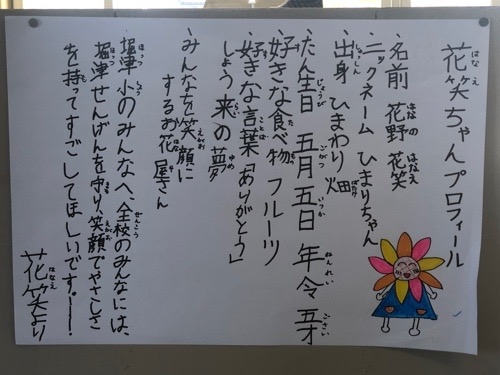 花笑ちゃんプロフィール
名前 花野 花笑
ニックネーム ひまりちゃん
出身 ひまわり畑
たん生日 五月五日 年令 五才
好きな食べ物 フルーツ
好きな言葉「ありがとう」
しょう来の夢
みんなを笑顔に
するお花屋さん
堀津小のみんなへ、全校のみんなには、
堀津せんげんを守り、笑顔でやさしさ
を持ってすごしてほしいです。ー!
花笑より